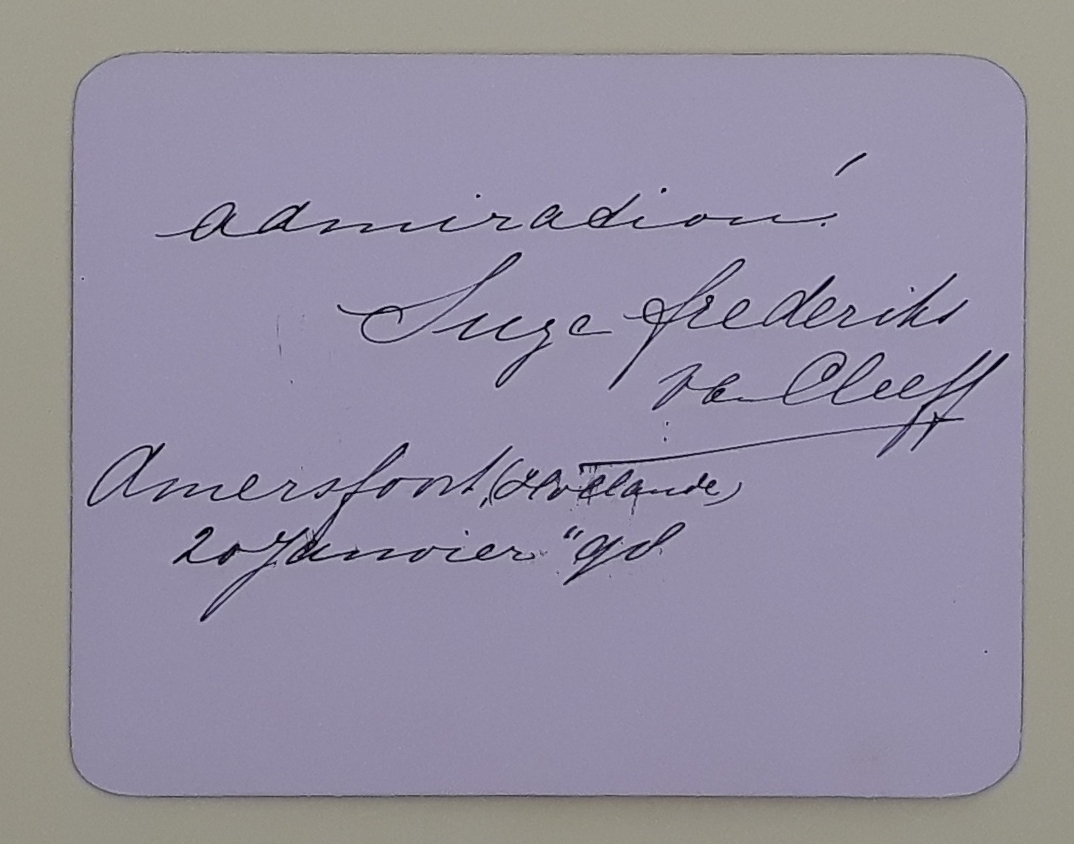 admiration!
Suze frederiks
van Cleeff
Amersfoort, (Hollande)
20 Janvier "98